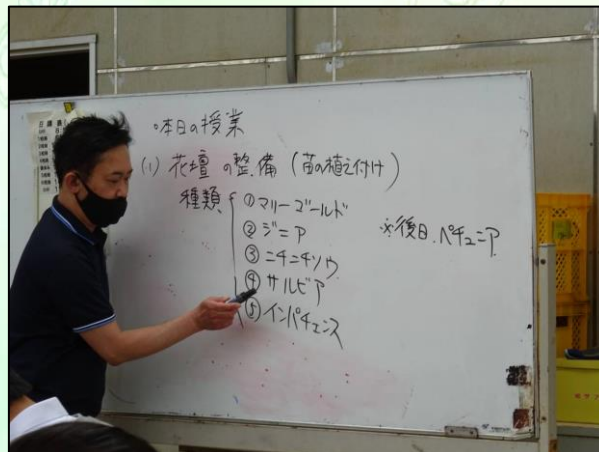 ○本日の授業
(1) 花壇の整備(苗の植え付け)
種類
①マリーゴールド
②ジニア
③ニチニチソウ
④サルビア
⑤インパチェンス
※後日、ペチュニア
日課表